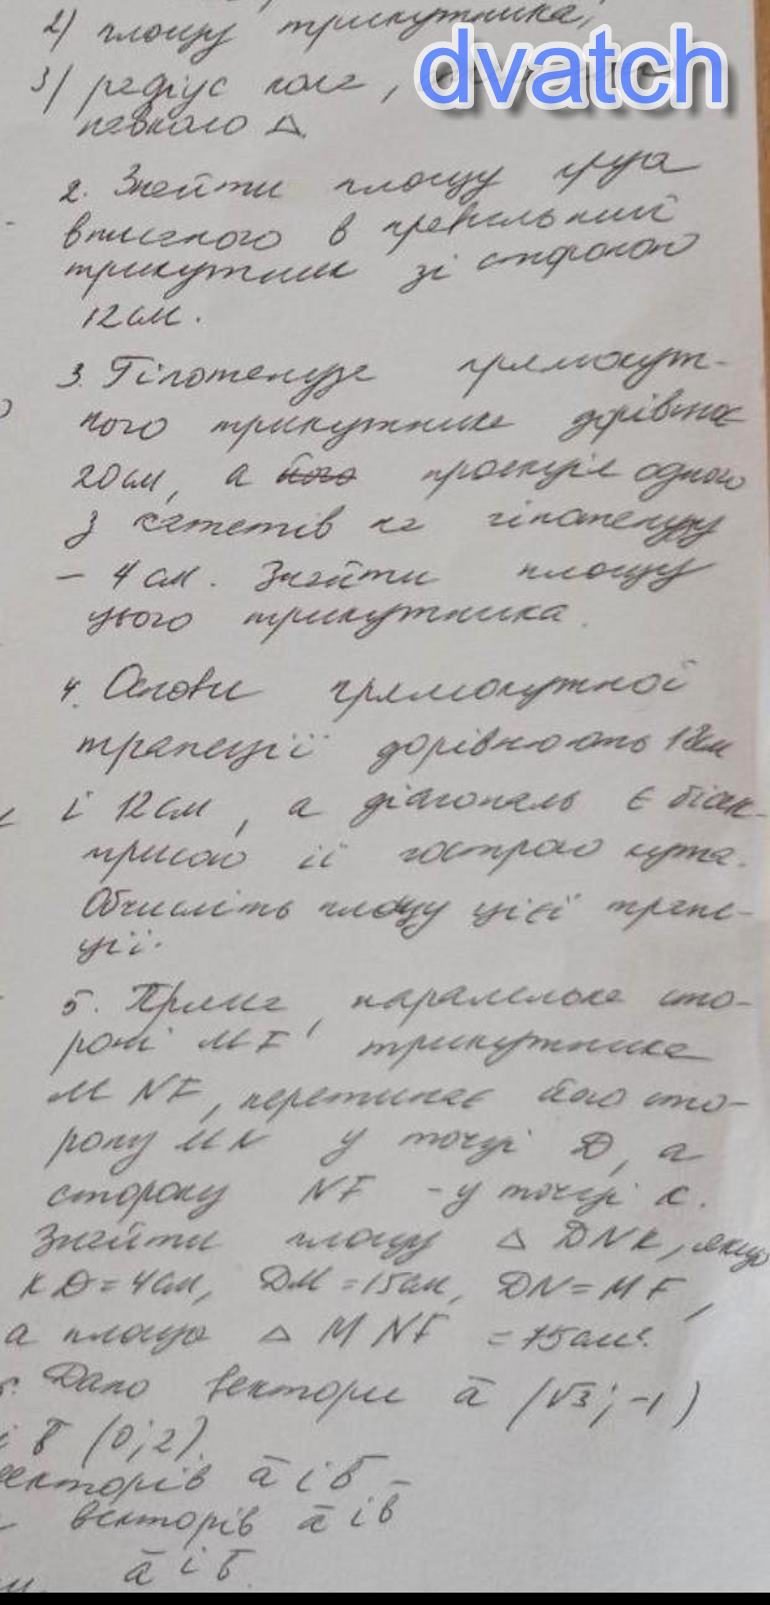 2) площу трикутника,
dvatch
3) радіус кола,
певного Δ.
2. Знайти площу круга
вписаного в правильний
трикутник зі стороною
12 см.
3. Гіпотенуза прямокут-
ного трикутника дорівнює
20 см, а його проекція одного
з катетів на гіпотенузу
– 4 см. Знайти площу
цього трикутника.
4. Основи прямокутної
трапеції дорівнюють 18 см
і 12 см, а діагональ є бісек-
трисою її гострого кута.
Обчисліть площу цієї трапе-
ції.
5. Пряма, паралельна сто-
роні MF трикутника
MNF, перетинає його сто-
рону MN у точці D, а
сторону NF – у точці K.
Знайти площу Δ DNK, якщо
KD = 4 см, DM = 15 см, DN = MF,
а площа Δ MNF = 75 см².
Дано вектори ā (√3; -1)
і b̄ (0; 2).
векторів ā і b̄ –
векторів ā і b̄
ā і b̄.